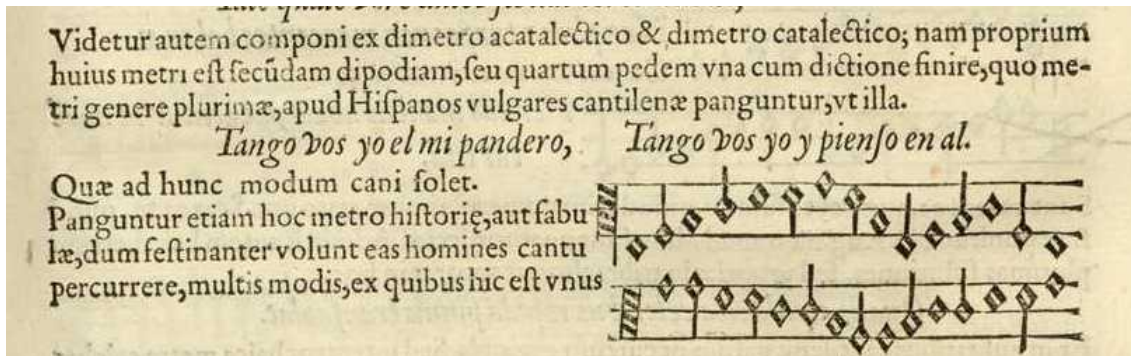 Videtur autem componi ex dimetro acatalectico & dimetro catalectico; nam proprium
huius metri eſt ſecūdam dipodiam, ſeu quartum pedem vna cum dictione finire, quo me-
tri genere plurimæ, apud Hiſpanos vulgares cantilenæ panguntur, vt illa.
Tango vos yo el mi pandero, Tango vos yo y pienſo en al.
Quæ ad hunc modum cani ſolet.
Panguntur etiam hoc metro hiſtorię, aut fabu
læ, dum feſtinanter volunt eas homines cantu
percurrere, multis modis, ex quibus hic eſt vnus